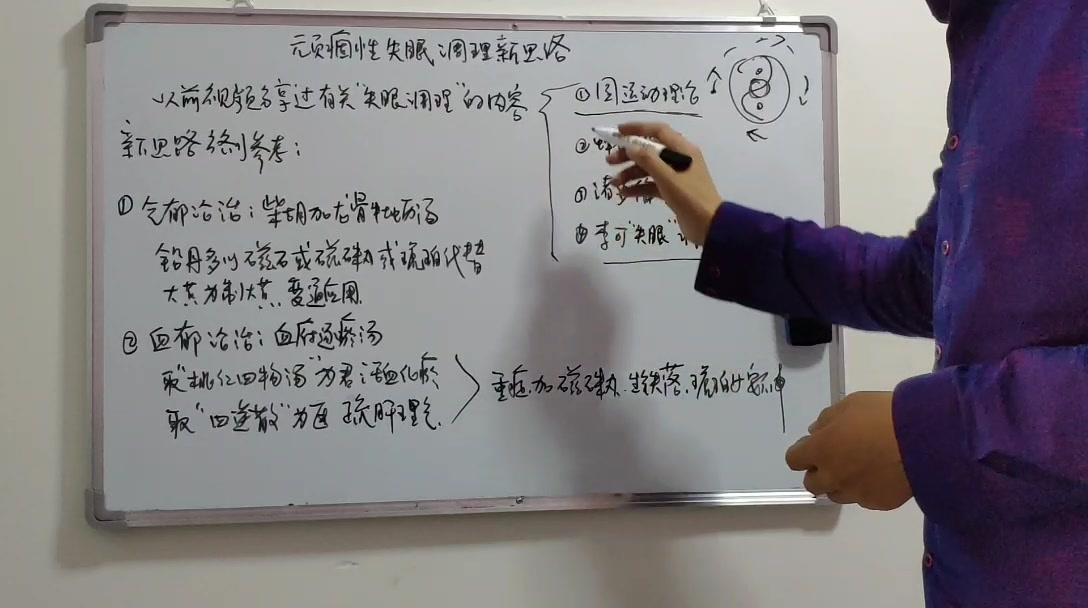 顽固性失眠调理新思路
以前视频分享过有关"失眠调理"的内容
①圆运动理论
②
③诸多
④李可"失眠"
新思路条列参考：
①气郁论治：柴胡加龙骨牡蛎汤
铅丹多以磁石或磁硃丸或琥珀代替
大黄为制大黄，变通应用.
②血郁论治：血府逐瘀汤
取"桃红四物汤"为君：活血化瘀
取"四逆散"为臣 疏肝理气.
重症加磁硃丸.生铁落.琥珀以安神